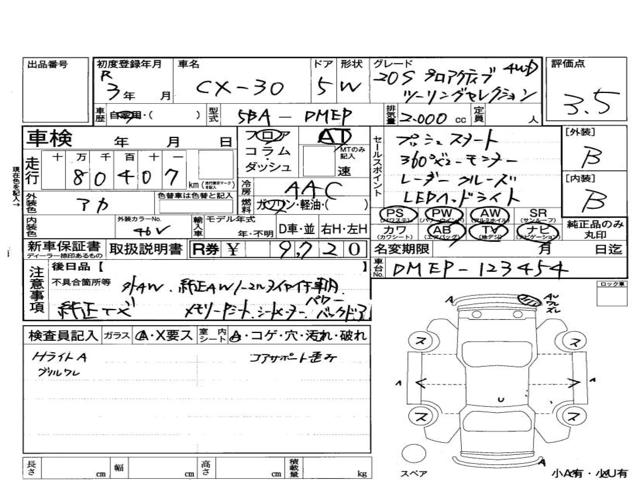 出品番号
初度登録年月 車名 ドア 形状 グレード 評価点
R 3年 月 CX-30 5W 20S プロアクティブ 4WD
ツーリングセレクション
3.5
車歴 自家用・( ) 型式 5BA-DMEP 排気量 2.000cc 定員 人
車検 年 月 日
フロア AT
コラム・ MTのみ記入
ダッシュ 速
走行 十万千百十一
80407 km
冷房 AAC
外装色 アカ 色替車は色替と記入
燃料 ガソリン・軽油・( )
内装色 外装カラーNo. 46V
輸入車 モデル年式 年・不明 D車・並 右H・左H
セールスポイント
プッシュスタート
360°ビューモニター
レーダークルーズ
LEDヘッドライト
[外装]
B
[内装]
B
PS PW AW SR (サンルーフ)
カワ AB TV ナビ
純正品のみ丸印
新車保証書 取扱説明書 R券 ¥ 9,720
ディーラー捺印あるもの
名変期限 月 日迄
車台No. DMEP-123454
注意事項
後日品 [ ]
不具合箇所等
純正ナビ メモリーシート、シートヒーター パワーバックドア
ロック車
検査員記入 ガラス A・X要ス 室内シート A・コゲ・穴・汚れ・破れ
HライトA
グリルワレ
コアサポート歪み
A
ワレ
ズレ
ス ス
A A
U
ス ス
A
スペア
小A有・小U有
長さ cm 幅 cm 高さ cm 積載量 kg
現在色を記入→